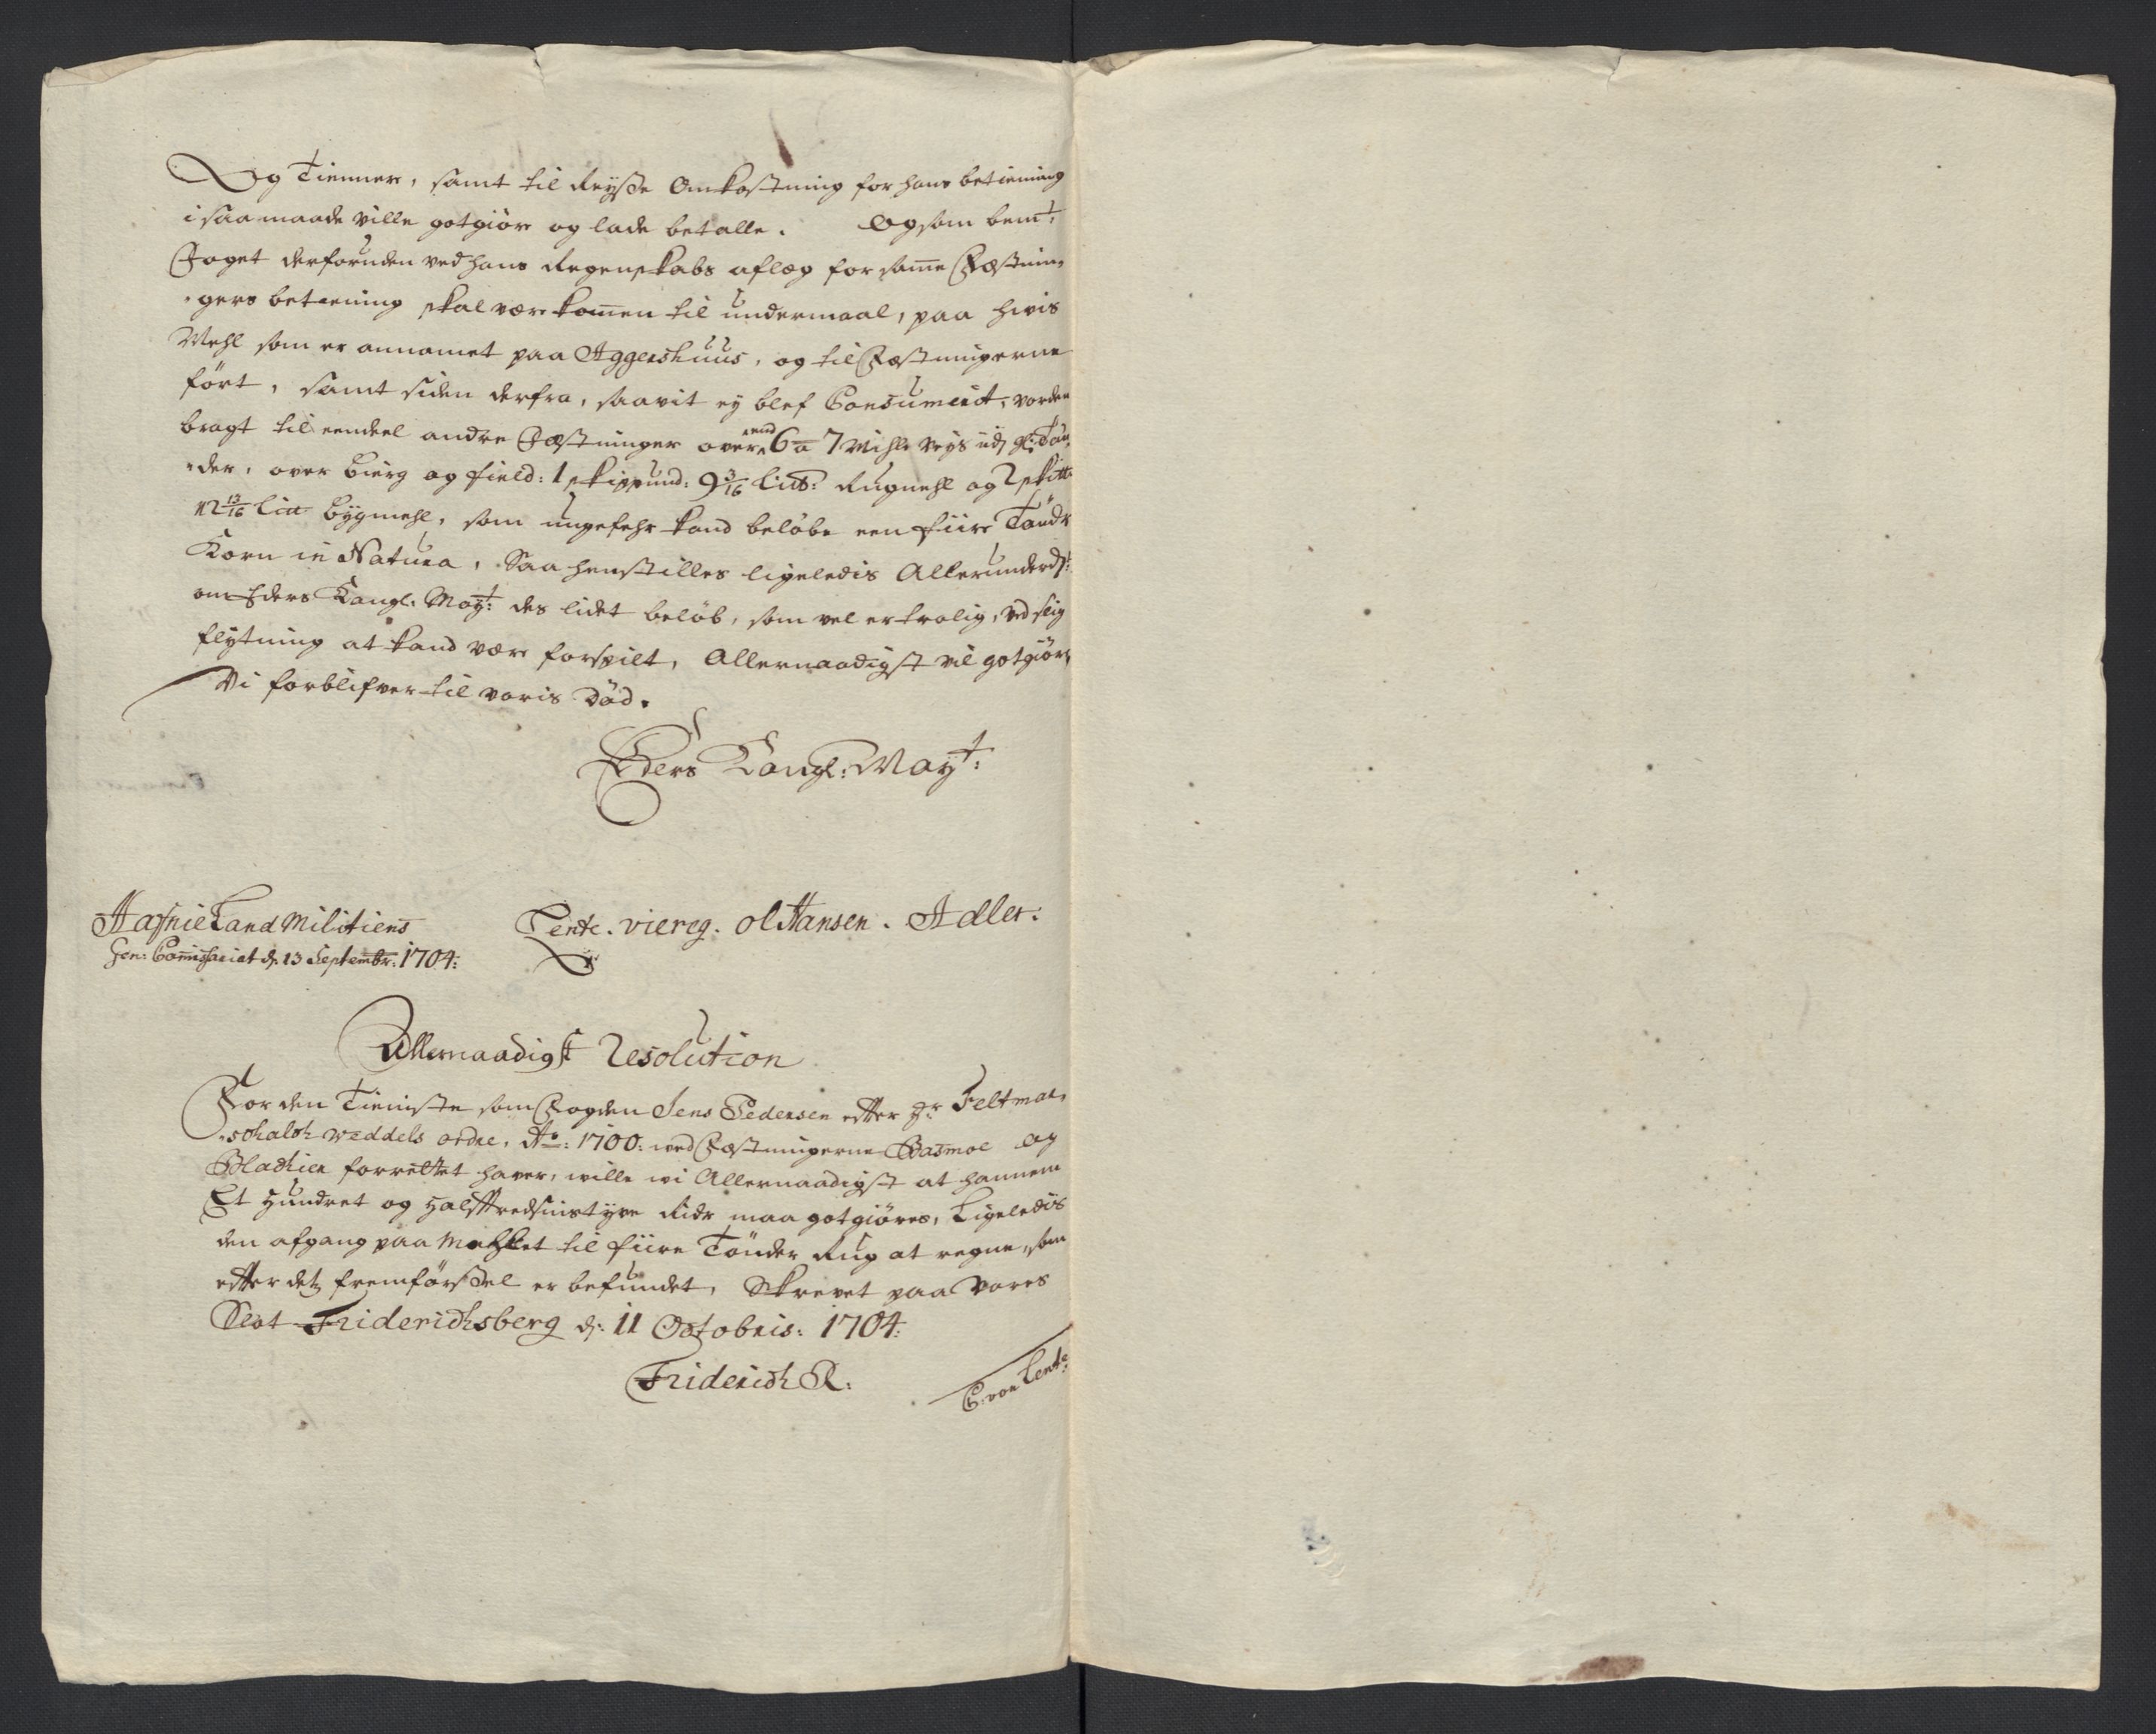 Og Tienner, samt til Reysse Omkostning for hans betiening
i saa maade ville gotgiöre og lade betalle. Og som bemt:
Foget derforuden ved hans Regenskabs aflæg for samme Fæstnin,
,gers betiening skal være kommen til undermaal, paa hvis
Mehl som er annamet paa Aggershuus, og til Fæstningerne
fört, samt siden derfra, saavit ey blef Consumerit, vorden
bragt til eendeel andre Fæstninger over 6 a 7 Mihle veys
,der, over bierg og field: 1 skippund: 9 3/16 Lissd: Rugmehl og 2 skitt:
12 13/16 Liss bygmehl, som ungefehr kand belöbe een fiire Tönder
Korn in Natura, Saa henstilles ligeledis Allerunderd:t
om Eders Kongl: Mayt: des lidet belöb, som vel er trolig, ved slig
flytning at kand være forspilt, Allernaadigst vil gotgiöre
Vi forblifver til voris Död.
Eders Kongl: Mayt:
Hafnie Land Militiens
Gen: Commissariat d. 13 Septembr: 1704:
Lente. Viereg. Ol Hansen. Adler:
Allernaadigst Resolution
For den Tieniste som Fogden Jens Pedersen efter Hr Feltmar,
,schalch Weddels ordre, Ao: 1700: ved Fæstningerne Basmoe og
Blachier forrettet haver, wille wi Allernaadigst at hannem
Et Hundret og Halfftredsinstyve Rdr maa gotgiöres, Ligeledis
den afgang paa Mehlet til fiire Tönder Rug at regne, som
efter detz fremförssel er befundet, Skrevet paa Vores
Slot Friderichsberg d: 11 Octobris: 1704:
Friderich R:
C: von Lente